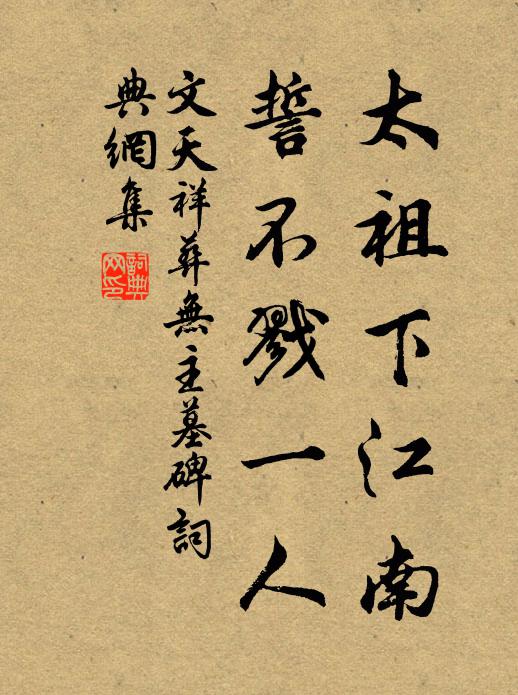 太祖下江南
誓不戮一人
文天祥葬無主墓碑詞
典網集
詞典
网印